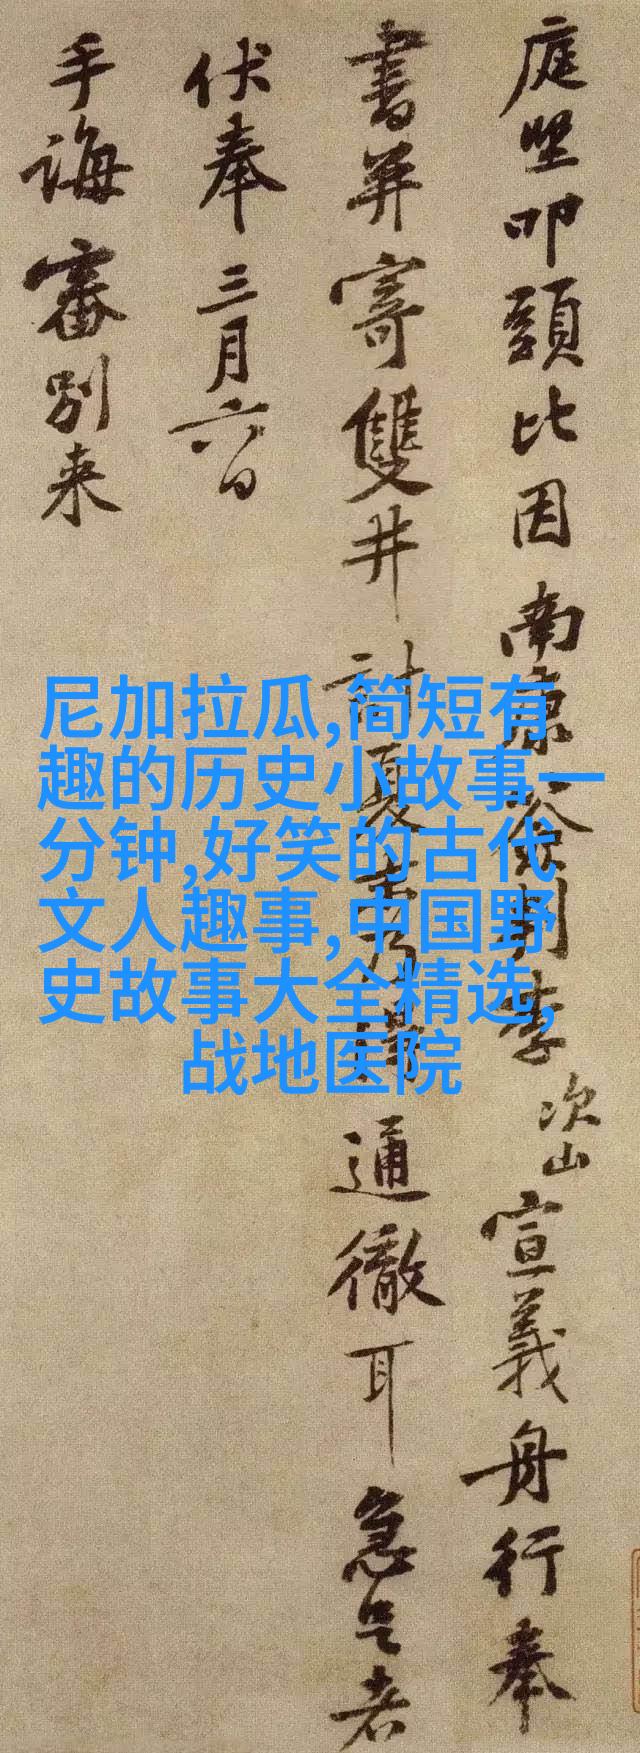 庭堅叩頭比因南康簽判李次山宣義舟行奉
書并寄雙井計夏得通徹耳急足者
伏奉三月六日
手誨審別来
尼加拉瓜,简短有
趣的历史小故事一
分钟,好笑的古代
文人趣事,中国野
史故事大全精选,
战地医院